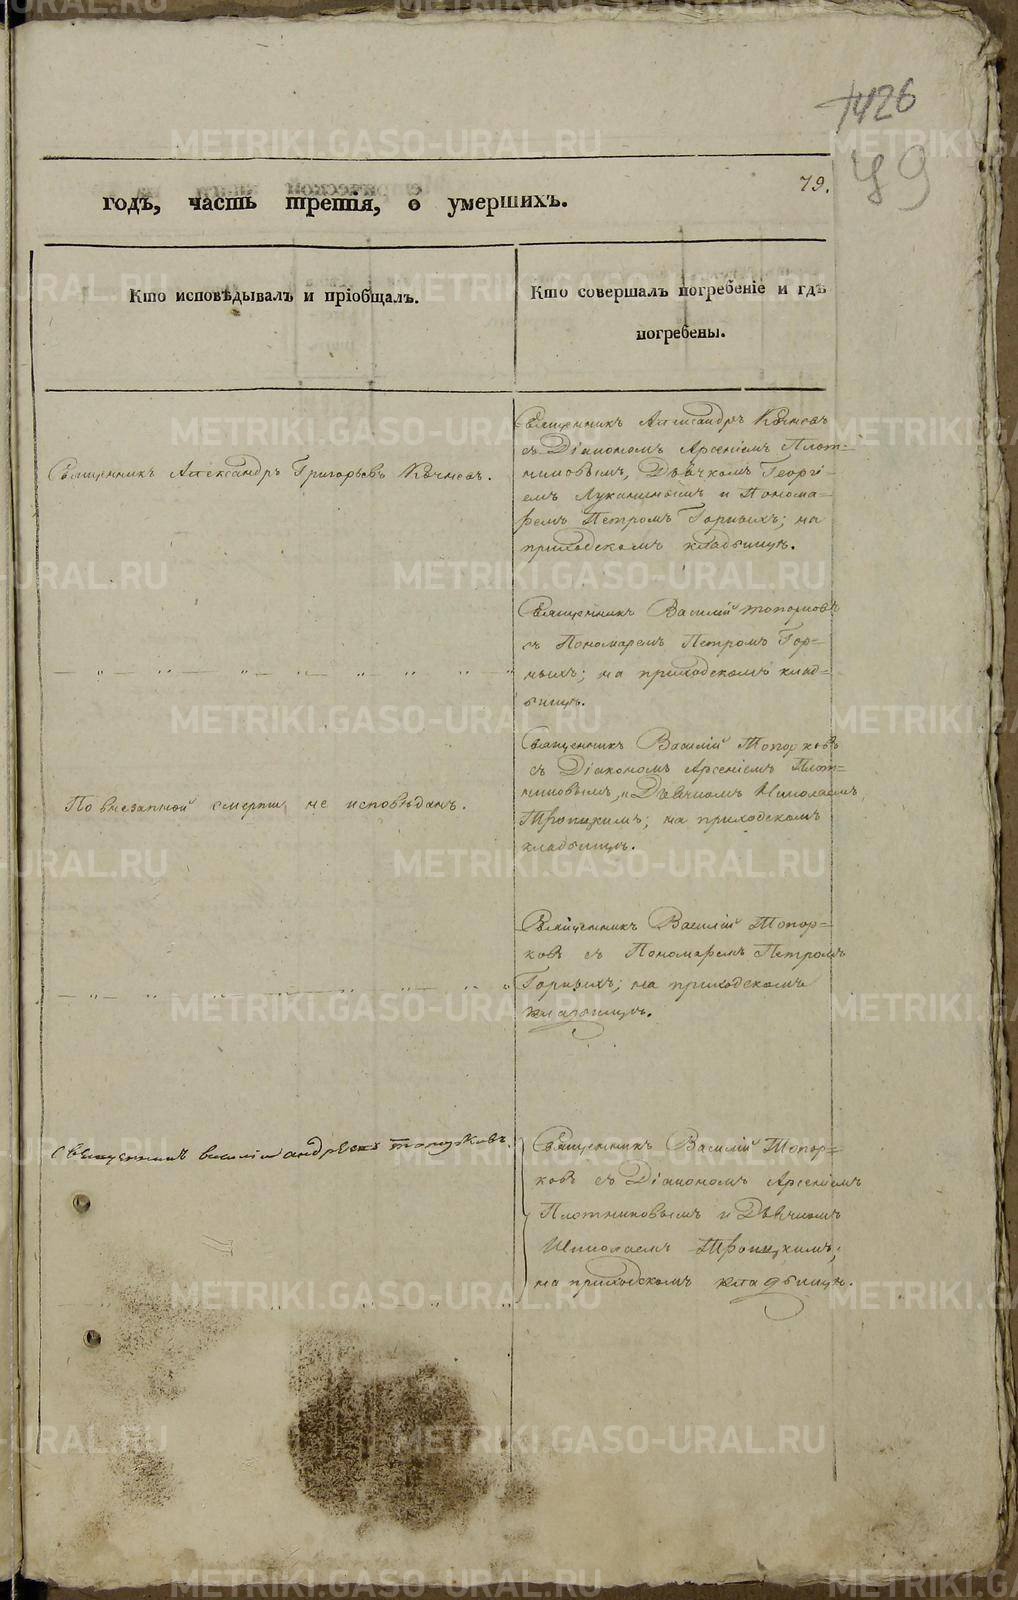 1426
49
79.
годъ, часть третія, о умершихъ.
Кто исповѣдывалъ и пріобщалъ.
Кто совершалъ погребеніе и гдѣ
погребены.
Священникъ Александръ Григорьевъ
Священникъ Александръ
съ Діакономъ Арсеніемъ Плот=
никовымъ, Дьячкомъ Георгі=
емъ Луканинымъ и Понома=
ремъ Петромъ Горныхъ; на
приходскомъ кладбищѣ.
Священникъ Василій Топорковъ
съ Пономаремъ Петромъ Гор=
ныхъ; на приходскомъ клад=
бищѣ.
По внезапной смерти, не исповѣданъ.
Священникъ Василій Топорковъ
съ Діакономъ Арсеніемъ Плот=
никовымъ, и Дьячкомъ Николаемъ
Троицкимъ; на приходскомъ
кладбищѣ.
Священникъ Василій Топор=
ковъ съ Пономаремъ Петромъ
Горныхъ; на приходскомъ
кладбищѣ.
Священникъ Василій Андреевъ Топорковъ.
Священникъ Василій Топор=
ковъ съ Діакономъ Арсеніемъ
Плотниковымъ и Дьячкомъ
Николаемъ Троицкимъ;
на приходскомъ кладбищѣ.
METRIKI.GASO-URAL.RU